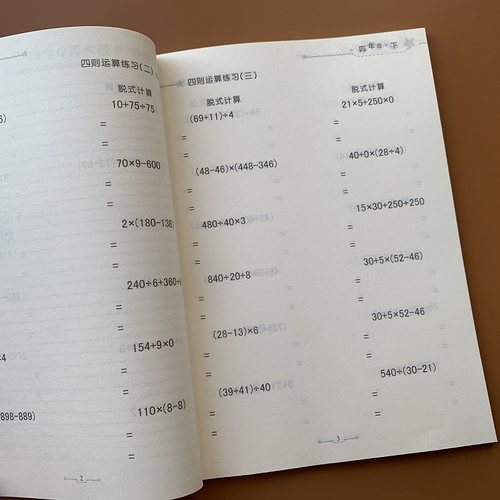 四则运算练习(二)
脱式计算
10+75÷75
=
=
70×9-600
=
=
2×(180-138)
=
=
=
154+9×0
=
=
898-889)
110×(8-8)
=
=
2
四年级·下
四则运算练习(三)
脱式计算
脱式计算
(69+11)÷4
21×5+250×0
=
=
=
=
=
(48-46)×(448-346)
40+0×(28÷4)
=
=
=
=
480÷40×3
15×30+250÷250
=
=
=
=
=
840÷20+8
30+5×(52-46)
=
=
=
=
=
(28-13)×6
30+5×52-46
=
=
=
=
=
(39+41)÷40
540÷(30-21)
=
=
=
=
3